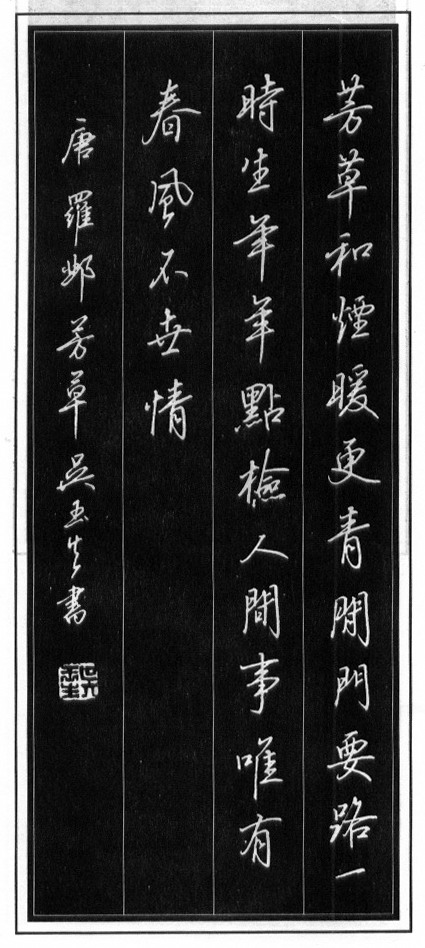 芳草和煙暖更青閒門要路一
時生年年點檢人間事唯有
春風不世情
唐羅邺芳草吳玉生書